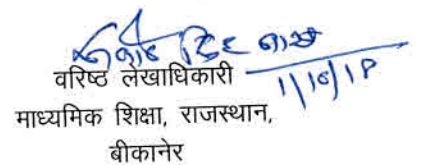 वरिष्ठ लेखाधिकारी
1/10/18
माध्यमिक शिक्षा, राजस्थान,
बीकानेर